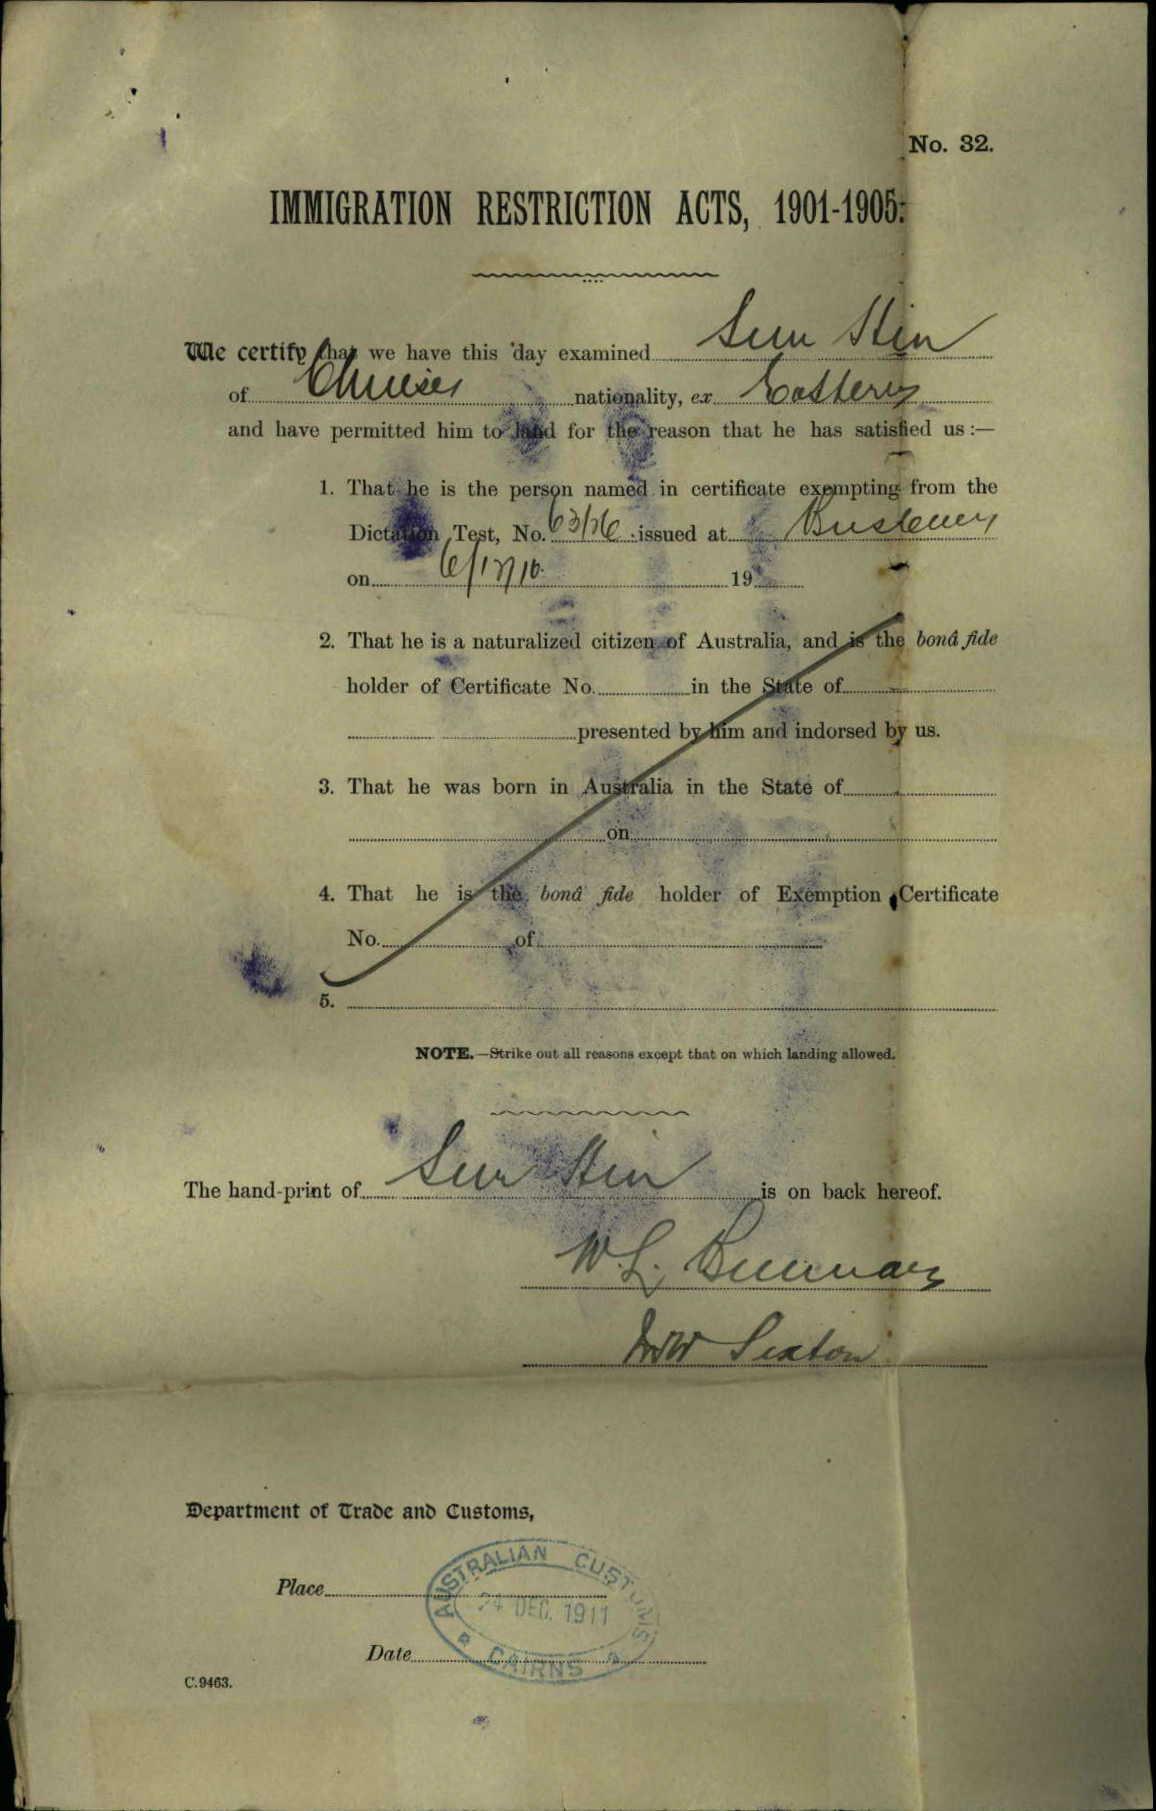 No. 32.
IMMIGRATION RESTRICTION ACTS, 1901-1905.
We certify that we have this day examined Sum Hin
of Chinese nationality, ex Eastern
and have permitted him to land for the reason that he has satisfied us :—
1. That he is the person named in certificate exempting from the
Dictation Test, No. 63/26 issued at
on 6/12/10 19
2. That he is a naturalized citizen of Australia, and is the bonâ fide
holder of Certificate No. in the State of
presented by him and indorsed by us.
3. That he was born in Australia in the State of
on
4. That he is the bonâ fide holder of Exemption Certificate
No. of
5.
NOTE.—Strike out all reasons except that on which landing allowed.
The hand-print of Sum Hin is on back hereof.
W. L.
Sexton
Department of Trade and Customs,
Place
AUSTRALIAN CUSTOMS
24 DEC. 1911
CAIRNS
Date
C.9463.